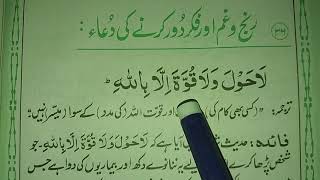 ۳۷
رنج و غم اور فکر دُور کرنے کی دُعاء :
لَاحَوْلَ وَلَا قُوَّةَ اِلَّا بِاللّٰهِ ط
ترجمہ: ”کسی بھی کام کی اور قوت اللہ (کی مدد) کے سوا میسر نہیں“
فائدہ: حدیث آیا ہے کہ لَاحَوْلَ وَلَا قُوَّةَ اِلَّا بِاللّٰهِ۔ جو
شخص پڑھا کرے یہ ننانوے دکھ اور بیماریوں کی دوا ہے جس